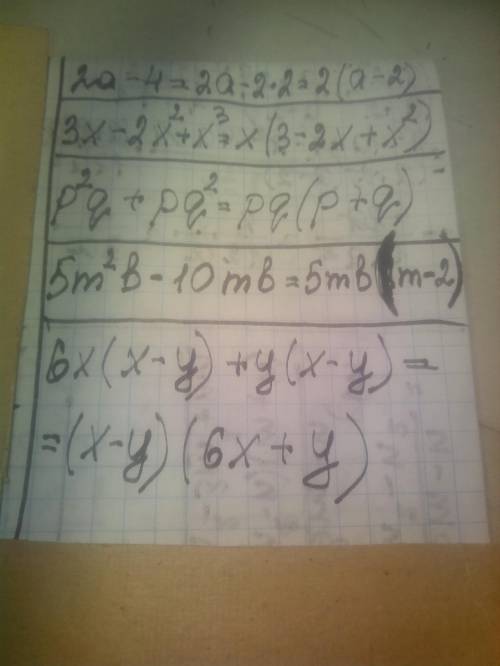 2a-4=2a-2·2=2(a-2)
3x-2x²+x³=x(3-2x+x²)
p²q+pq²=pq(p+q)
5m²b-10mb=5mb(m-2)
6x(x-y)+y(x-y)=
=(x-y)(6x+y)